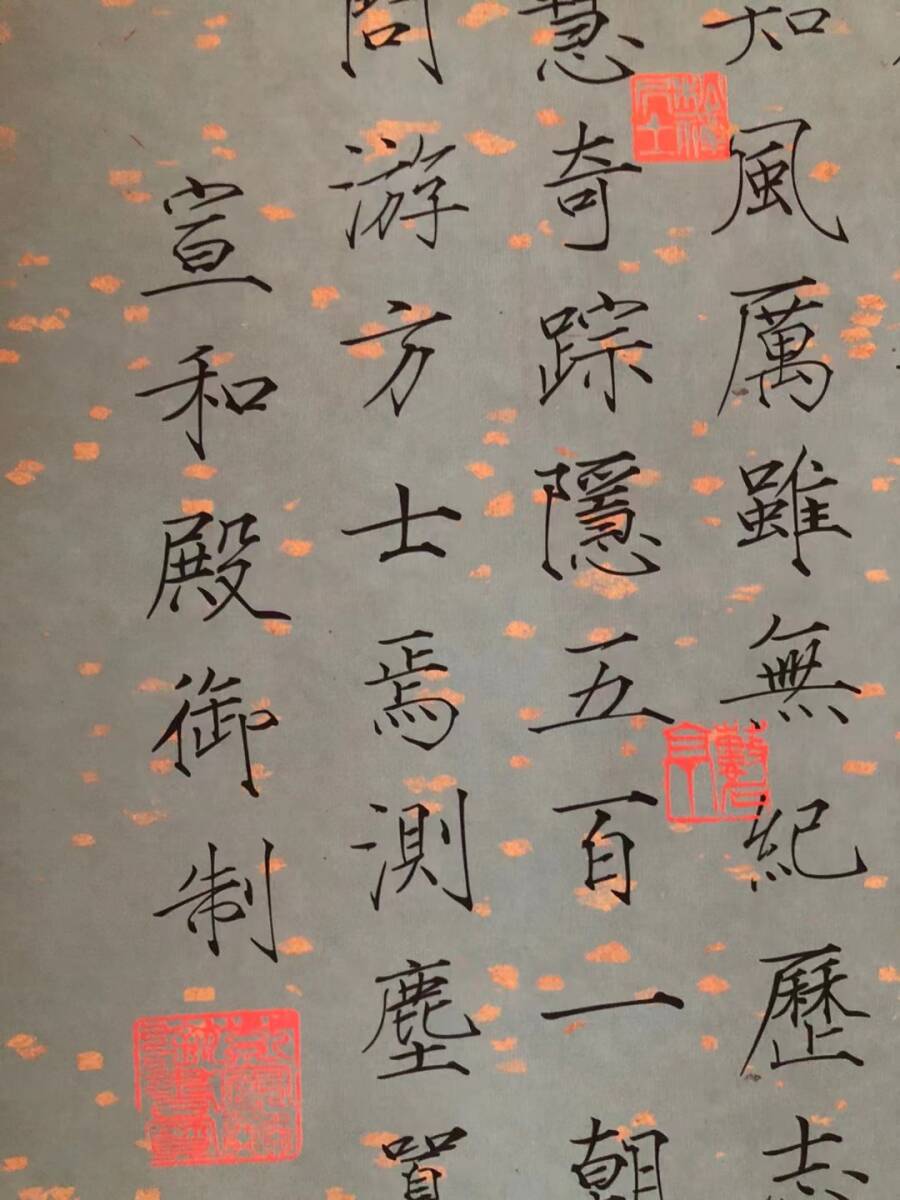 知風厲雖無紀歷志
慧奇踪隱五百一朝
問游方士焉測塵
宣和殿御制